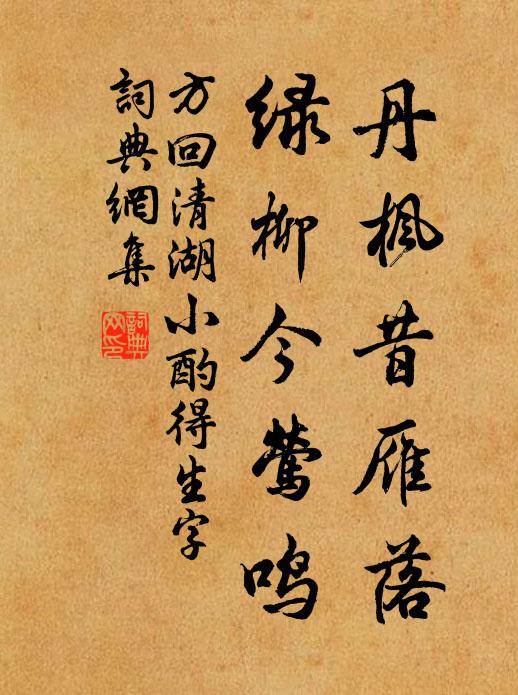 丹枫昔雁落
绿柳今莺鸣
方回清湖小酌得生字
詞典網集
詞典网印